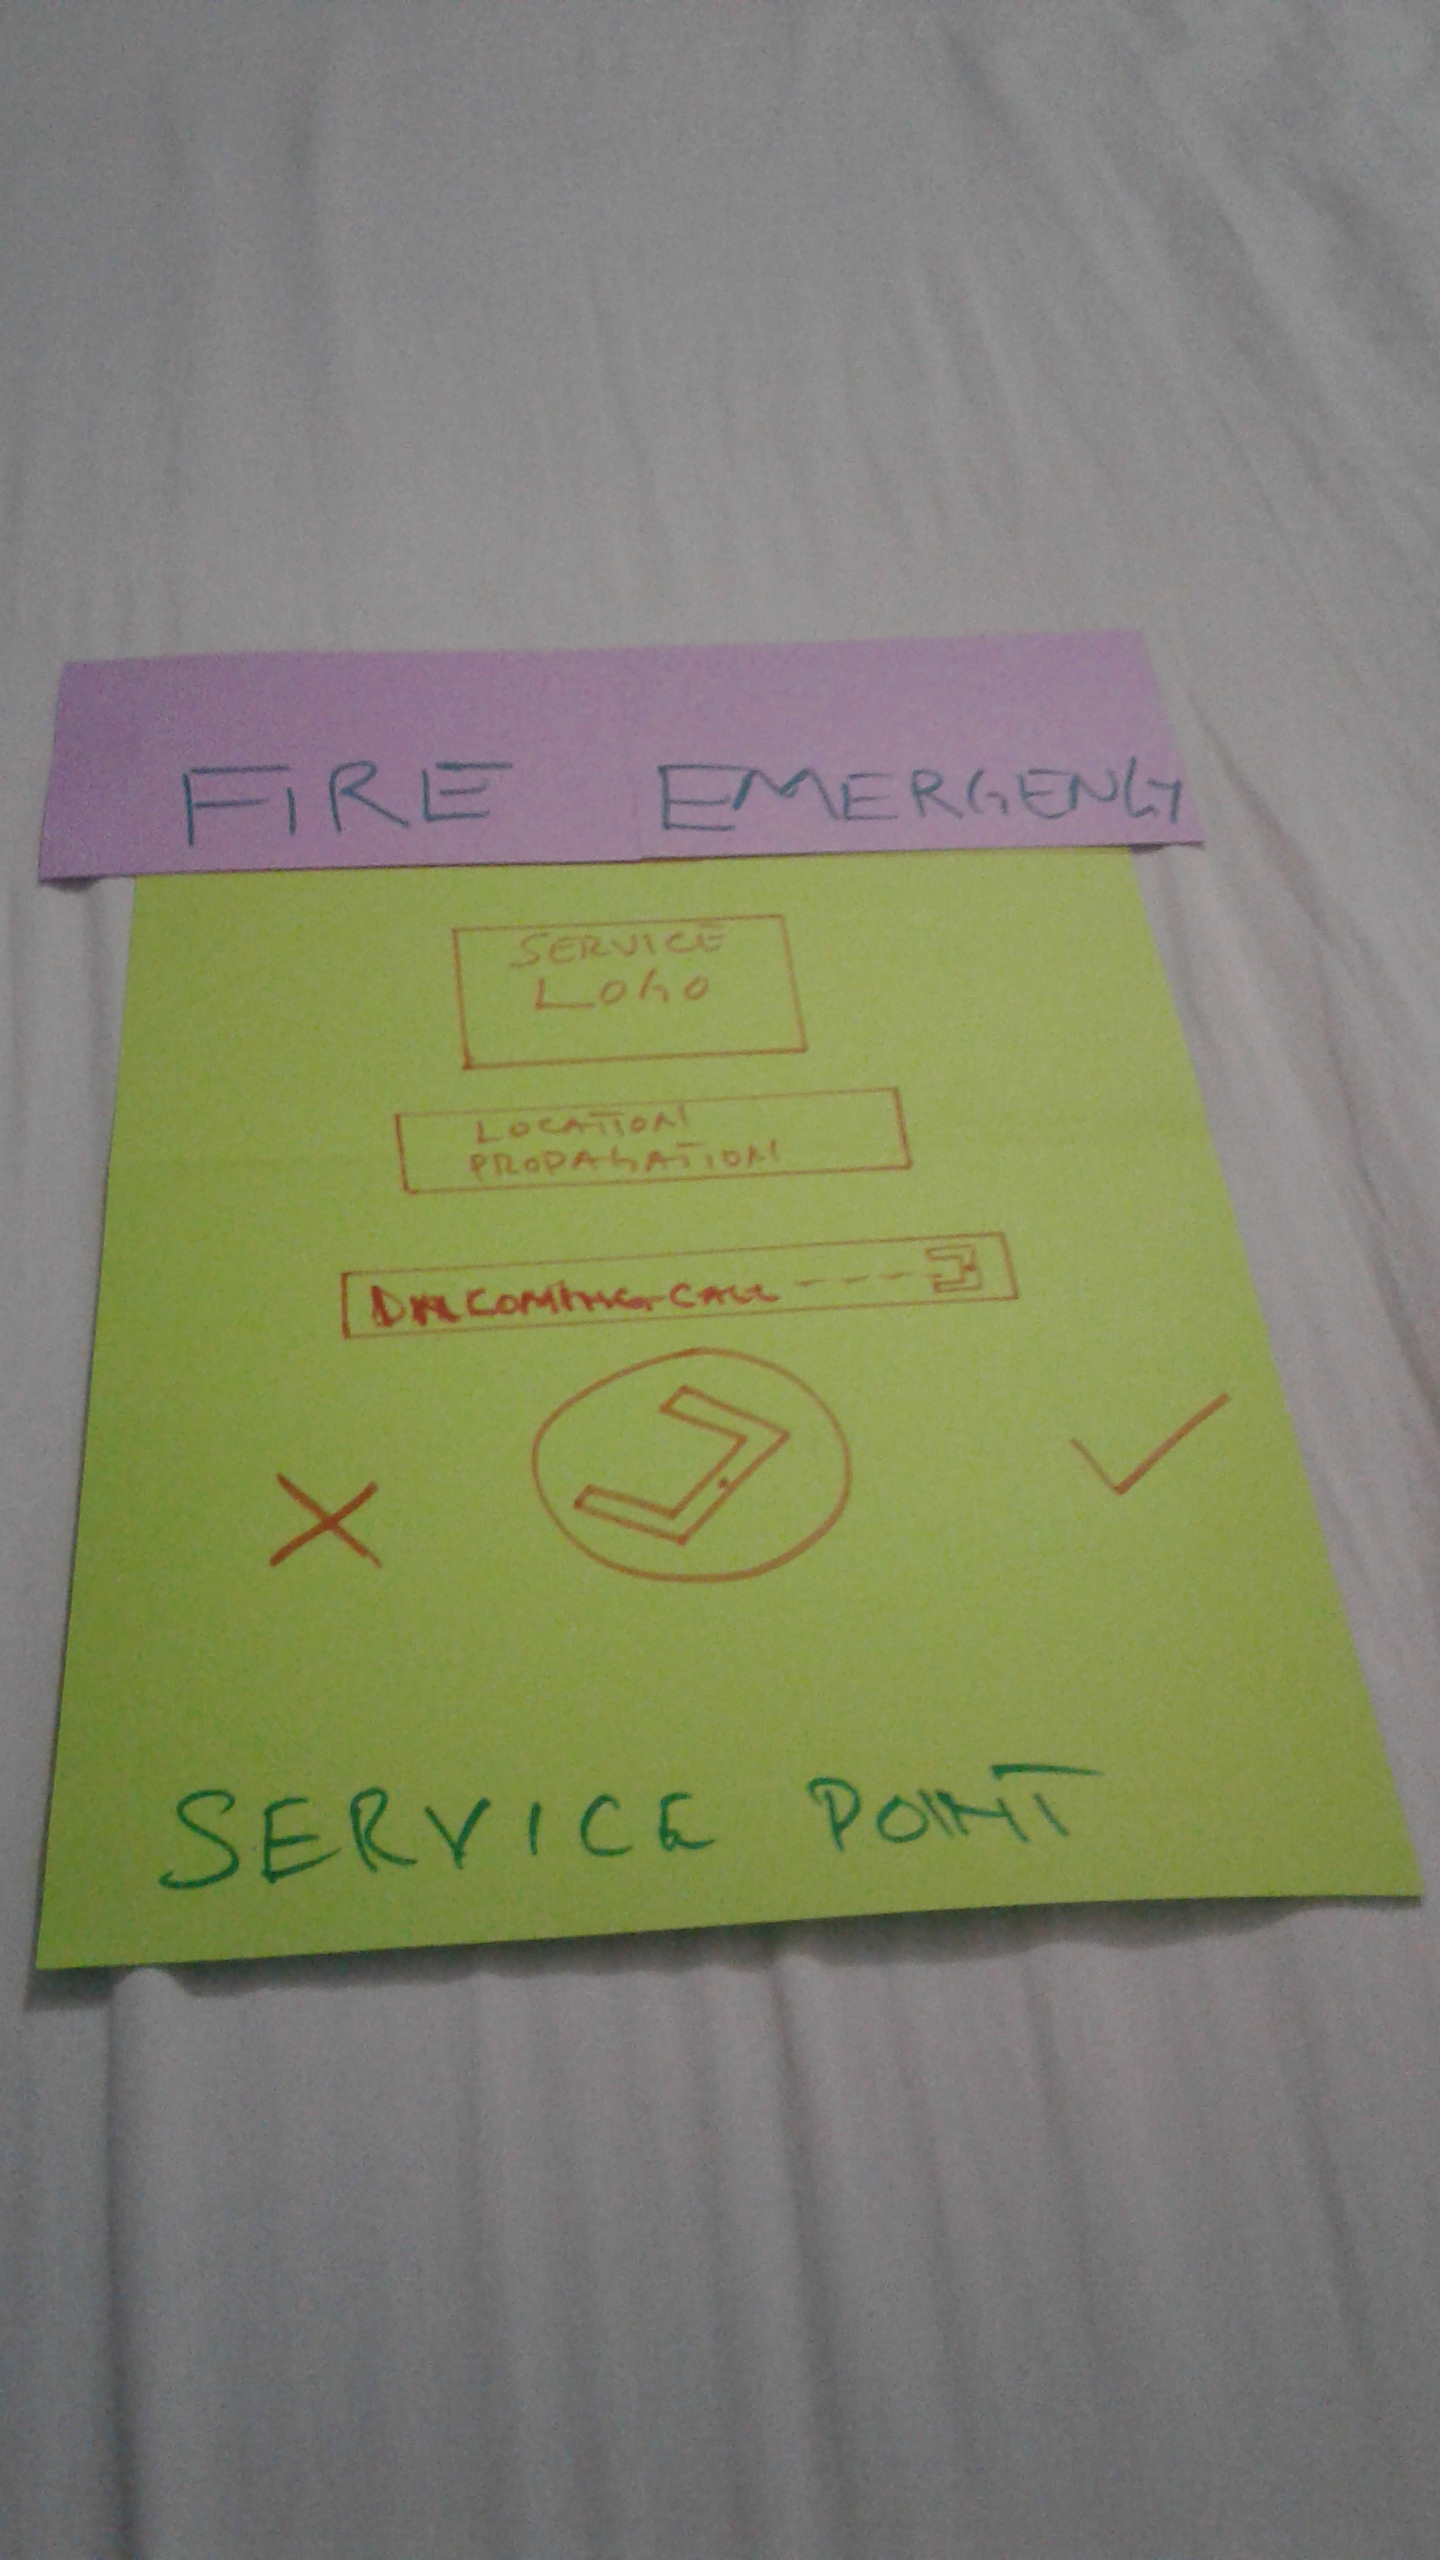 FIRE EMERGENCY
SERVICE
LOGO
LOCATION
PROPAGATION
INCOMING CALL
SERVICE POINT